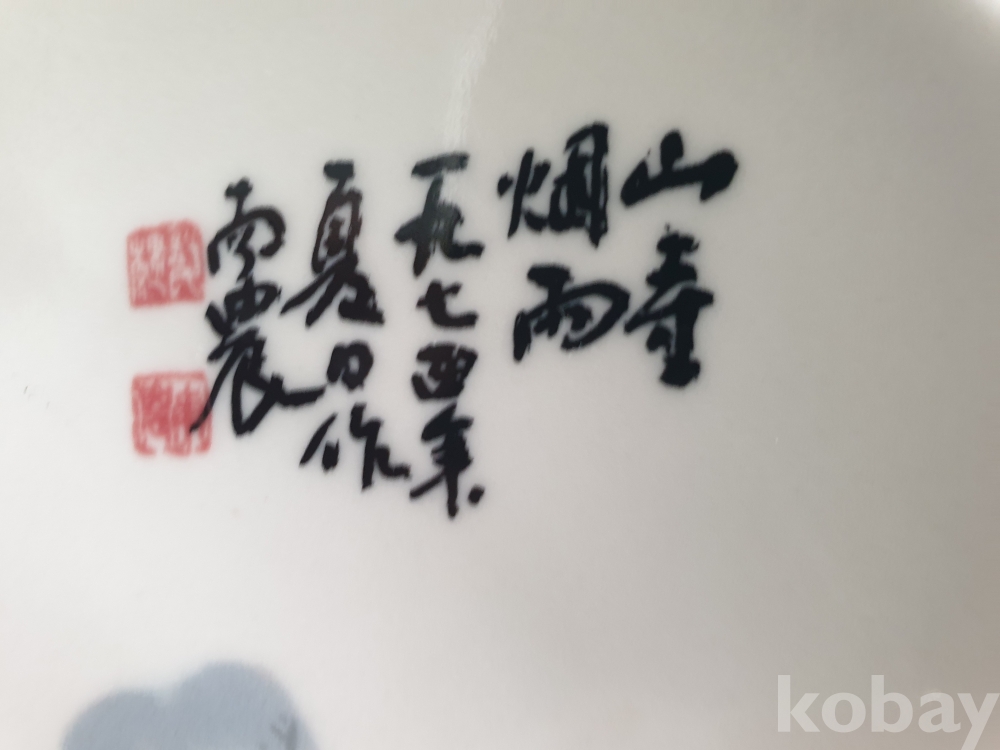 山寺
烟雨
一九七四年
夏日作
雨農
kobay